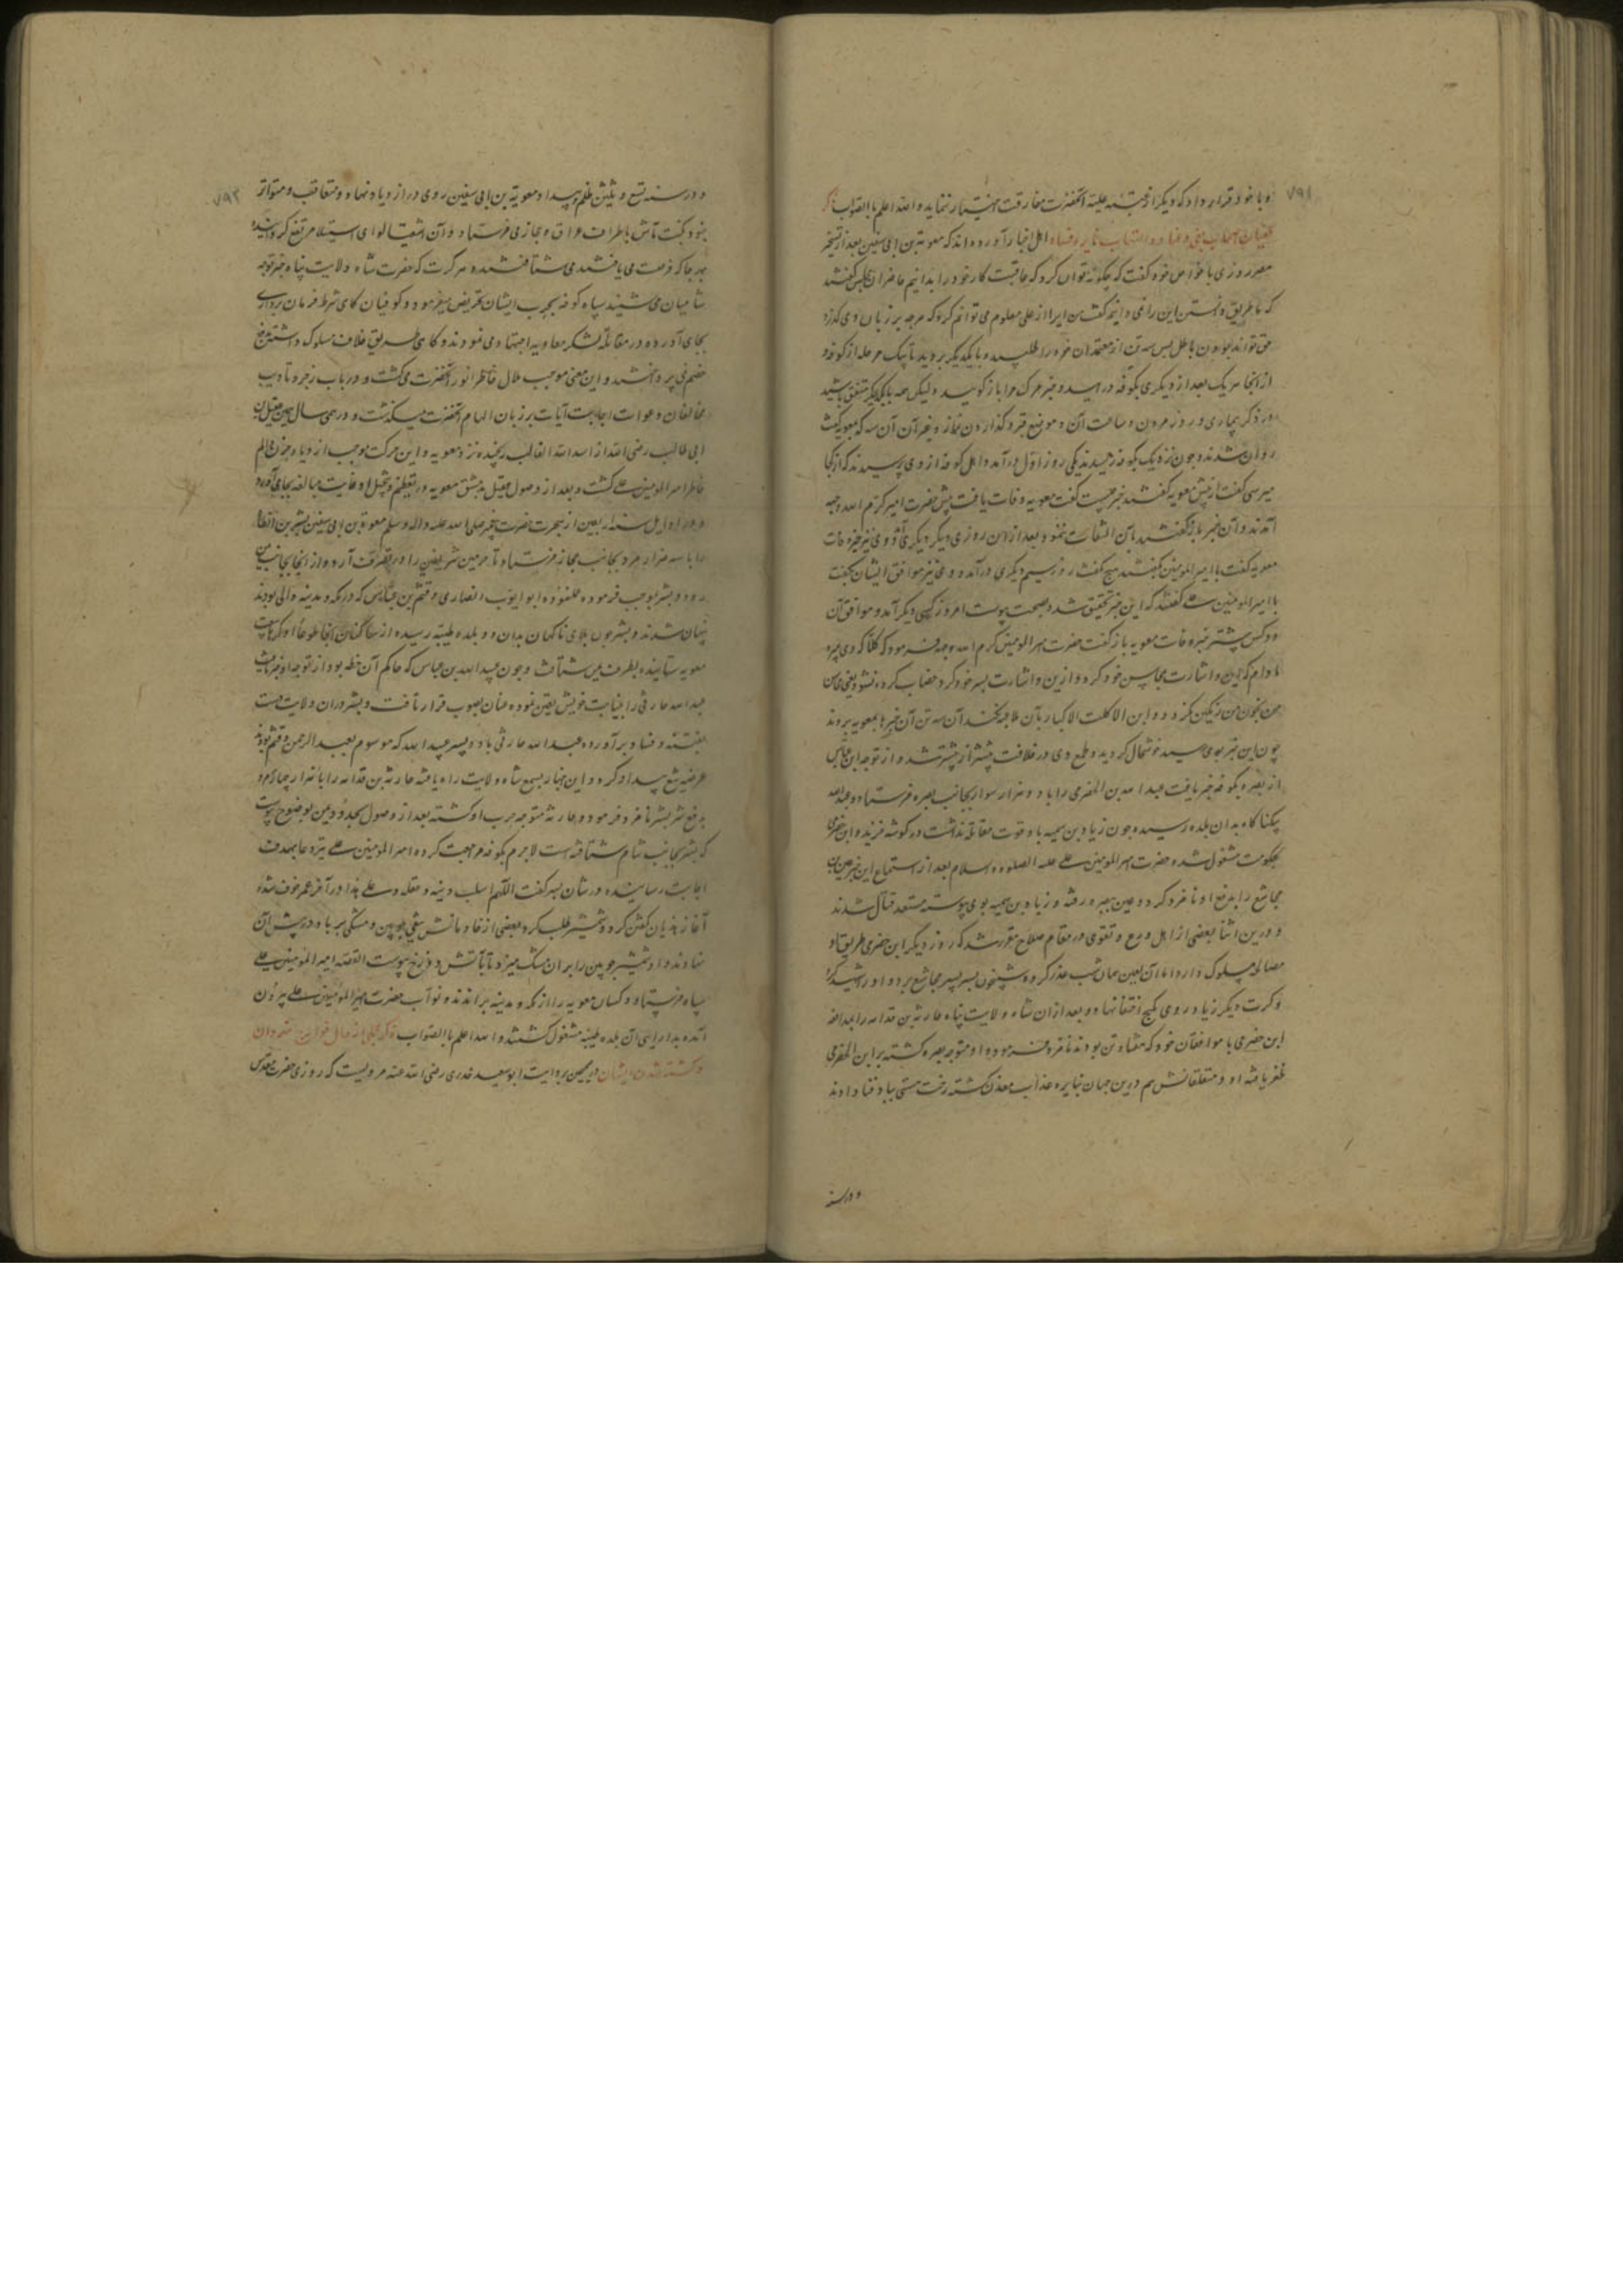 ۷۹۱
و با خود قرار داد که دیگر از عتبه علیه آنحضرت مفارقت اختیار ننماید و الله اعلم بالصواب ذکر
طغیان اصحاب بغی و عناد و التهاب نایره فساد اهل اخبار آورده اند که معویة بن ابی سفین بعد از تسخیر
مصر روزی با خواص خود گفت که چگونه توان کرد که عاقبت کار خود را بدانیم حاضران مجلس گفتند
که ما طریق دانستن این را نمی دانیم گفت من این را از علی معلوم می توانم کرد که هرچه بر زبان وی گذرد
حق تواند بودن نه باطل پس سه تن از معتمدان خود را طلبیده با یکدیگر بروید تا یک مرحله از کوفه و
از آنجا هر یک بعد از دیگری بکوفه درآیید و خبر مرک مرا باز گویید ولیکن همه با یکدیگر متفق باشید
در ذکر بیماری و روز مردن و ساعت آن و موضع قبر و گذاردن نماز و غیر آن آن سه کس بگفته معویه
روان شدند و چون نزدیک بکوفه رسیدند یکی روز اول درآمد و اهل کوفه از وی پرسیدند که از کجا
میرسی گفت از پیش معویه گفتند خبر چیست گفت معویه وفات یافت پیش حضرت امیر کرم الله وجهه
آمدند و آن خبر باز گفتند بآن التفات ننمود بعد از آن روزی دیگر دیگری آمد و وی نیز خبر وفات
معویه گفت با امیرالمومنین گفتند هیچ نگفت روز سیم دیگری درآمد و وی نیز موافق ایشان گفت
با امیرالمومنین علی گفتند که این خبر تحقیق شد و بصحت پیوست امروز کسی دیگر آمد و موافق آن
دو کس پیشتر خبر وفات معویه باز گفت حضرت امیرالمومنین کرم الله وجهه فرمود که کلا که وی میرد
مادام که این و اشارت بمحاسن خود کرد و ازین و اشارت بسر خود کرد خضاب کرده نشود یعنی محاسن
من بخون من رنگین نگردد و ابن آکلة الاکباد بآن ملاعبه نکند آن سه تن آن خبر را بمعویه بردند
چون این خبر بوی رسید خوشحال گردید و طمع وی در خلافت بیشتر از پیشتر شد و از توجه ابن عباس
از بصره بکوفه خبر یافت عبدالله بن الحضرمی را با دو هزار سوار بجانب بصره فرستاد و عبدالله
بیکناگاه بدان بلده رسید و چون زیاد بن سمیه با او قوت مقاتله نداشت در گوشه خزید و ابن حضرمی
بحکومت مشغول شد حضرت امیرالمومنین علی علیه الصلوة والسلام بعد از استماع این خبر اعین بن
مجاشع را بدفع او نامزد کرد و اعین ببصره رفته و زیاد بن سمیه بوی پیوسته مستعد قتال شدند
و درین اثنا بعضی از اهل ورع و تقوی در مقام صلاح مقرر شد که روز دیگر ابن حضرمی طریق
مصالحه مسلوک دارد اما آن لعین همان شب عذر کرده شبیخون بسر پسر مجاشع برد و او را شهید کرد
و کرت دیگر زیاد روی بکنج اختفا نهاد و بعد از آن شاه ولایت پناه جاریه بن قدامه را بمدافعه
ابن حضرمی با موافقان خود که هفتاد تن بودند نامزد فرموده او متوجه بصره گشته بر ابن الحضرمی
ظفر یافته او و متعلقانش هم درین جهان بنایره عذاب معذب گشته رخت هستی بباد فنا دادند
و در سنه
۷۹۲
و در سنه تسع و ثلثین ظلم و بیداد معویة بن ابی سفین روی در ازدیاد نهاد و متعاقب و متواتر
جنود نکبت مآثر باطراف عراق و حجاز می فرستاد و آن اشقیا لوای استیلا مرتفع گردانیده
بهر جا که فرصت می یافتند می شتافتند هر کرت که حضرت شاه ولایت پناه خبر توجه
شامیان می شنید سپاه کوفه بحرب ایشان تحریض میفرمود و کوفیان گاهی شرط فرمان برداری
بجای آورده در مقاتله لشکر معاویه اجتهاد می نمودند و گاهی طریق خلاف مسلوک داشته بدفع
خصم نمی پرداختند و این معنی موجب ملال خاطر انور آنحضرت می گشت و در باب زجر و تادیب
مخالفان دعوات اجابت آیات بر زبان الهام آنحضرت میگذشت و در همین سال عقیل بن
ابی طالب رضی الله از اسد الله الغالب رنجیده نزد معویه رفت و این حرکت موجب ازدیاد حزن و الم
خاطر امیرالمومنین علی گشت و بعد از وصول عقیل بدمشق معویه در تعظیم و تبجیل او غایت مبالغه بجای آورد
و در اوایل سنه اربعین از هجرت حضرت پیغمبر صلی الله علیه و اله و سلم معویة بن ابی سفین بشر بن ارطاة
را با سه هزار مرد بجانب حجاز فرستاد تا حرمین شریفین را در تصرف آرد و از آنجا بجانب یمن
رود و بشر بموجب فرموده عمل نموده ابو ایوب انصاری و قثم بن عباس که در مکه و مدینه والی بودند
پنهان شدند و بشر چون بلای ناگهان بدان دو بلده طیبه رسیده از ساکنان آنجا طوعا او کرها بیعت
معویه ستانیده بطرف یمن شتافت و چون عبیدالله بن عباس که حاکم آن خطه بود از توجه او خبر یافت
عبدالله حارثی را بنیابت خویش تعین نموده عنان بصوب فرار تافت و بشر در آن ولایت دست
بفتنه و فساد برآورده عبدالله حارثی با دو پسر عبیدالله که موسوم بعبد الرحمن و قثم بودند
عرضه تیغ بیداد کرد و این اخبار بسمع شاه ولایت راه یافته جاریه بن قدامه را با هزار چهار مرد
بدفع شر بشر نامزد فرمود و جاریه متوجه حرب او گشته بعد از وصول بحدود یمن بوضوح پیوست
که بشر بجانب شام شتافته است لاجرم بکوفه مراجعت کرد و امیرالمومنین علی تیر دعا بهدف
اجابت رسانیده در شان بشر گفت اللهم اسلب دینه و عقله و علی هذا در آخر عمر خرف شده
آغاز هذیان گفتن کرد و شمشیر طلب کرد بعضی از خادمانش تیغی چوبین و مشکی پر باد در پیش آن
نهادند و او شمشیر چوبین را بر آن مشک میزد تا بآتش دوزخ پیوست القصه امیرالمومنین علی
سپاه فرستاد و کسان معویه را از مکه و مدینه براندند و نواب حضرت امیرالمومنین علی بیرون
آمده بدارایی آن بلده طیبه مشغول گشتند و الله اعلم بالصواب ذکر مجملی از حال خوارج نهروان
و کشته شدن ایشان در صحیحین بروایت ابو سعید خدری رضی الله عنه مرویست که روزی حضرت مقدس